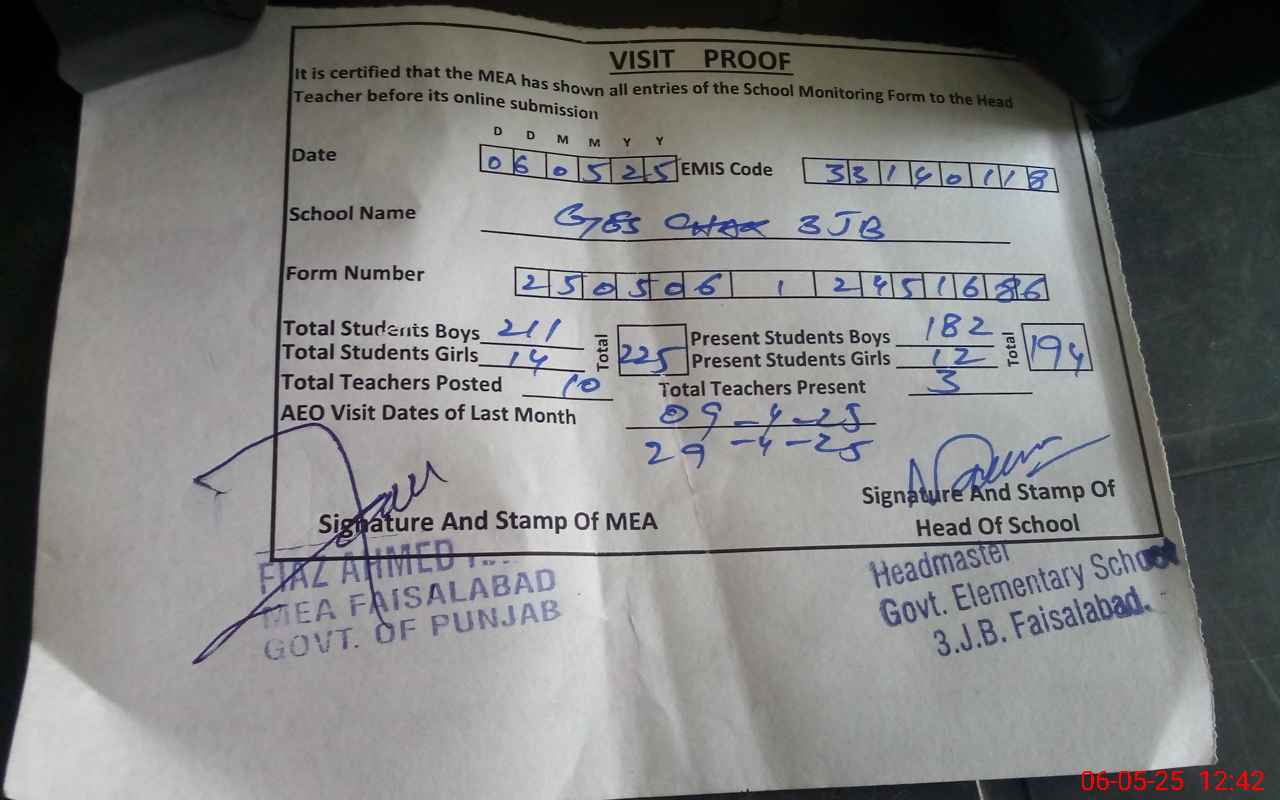 VISIT PROOF
It is certified that the MEA has shown all entries of the School Monitoring Form to the Head
Teacher before its online submission
D D M M Y Y
Date 060525 EMIS Code 33140118
School Name GES CHAK 3JB
Form Number 250506 1 2451686
Total Students Boys 211 Total 225 Present Students Boys 182 Total 194
Total Students Girls 14 Present Students Girls 12
Total Teachers Posted 10 Total Teachers Present 3
AEO Visit Dates of Last Month 09-4-25
29-4-25
Signature And Stamp Of MEA
Signature And Stamp Of
Head Of School
FIAZ AHMED
MEA FAISALABAD
GOVT. OF PUNJAB
Headmaster
Govt. Elementary School
3.J.B. Faisalabad.
06-05-25 12:42